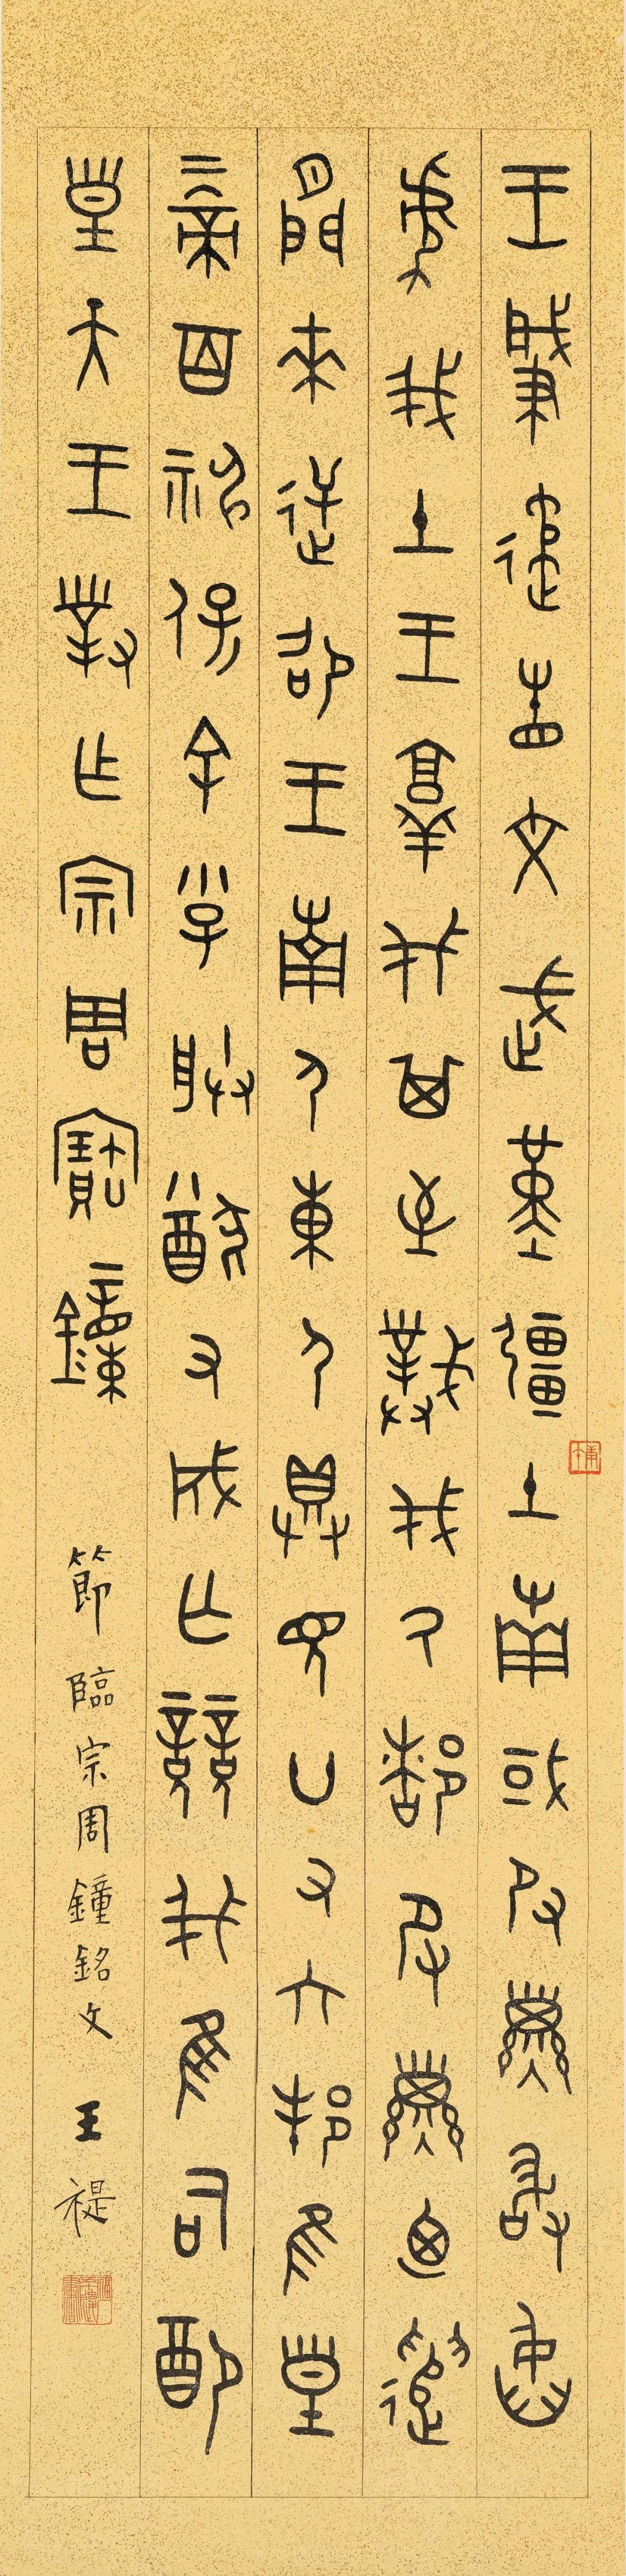 王肇遹省文武堇疆土南或𠬝孳敢臽
虐我土王𦎫伐其至撲伐厥都𠬝孳迺遣
閒來逆卲王南尸東尸具見廿又六邦隹皇
上帝百神保余小子朕猷又成亡競我隹司配
皇天王對乍宗周寶鐘 節臨宗周鐘銘文 王禔